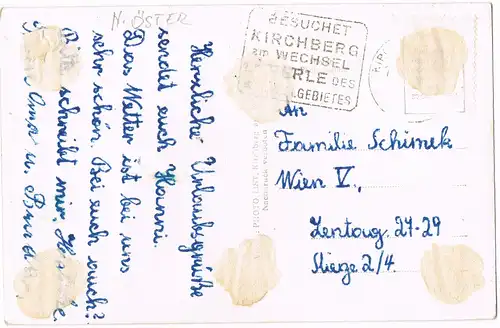 N. ÖSTER
BESUCHET
KIRCHBERG
AM WECHSEL
PERLE DES
GEBIETES
Herzliche Urlaubsgrüße
sendet euch Hanni.
Das Wetter ist bei uns
sehr schön. Bei euch auch?
Bitte schreibt mir.
Oma u.
An
Familie Schimek
Wien V.,
Zentag. 27-29
Stiege 2/4.